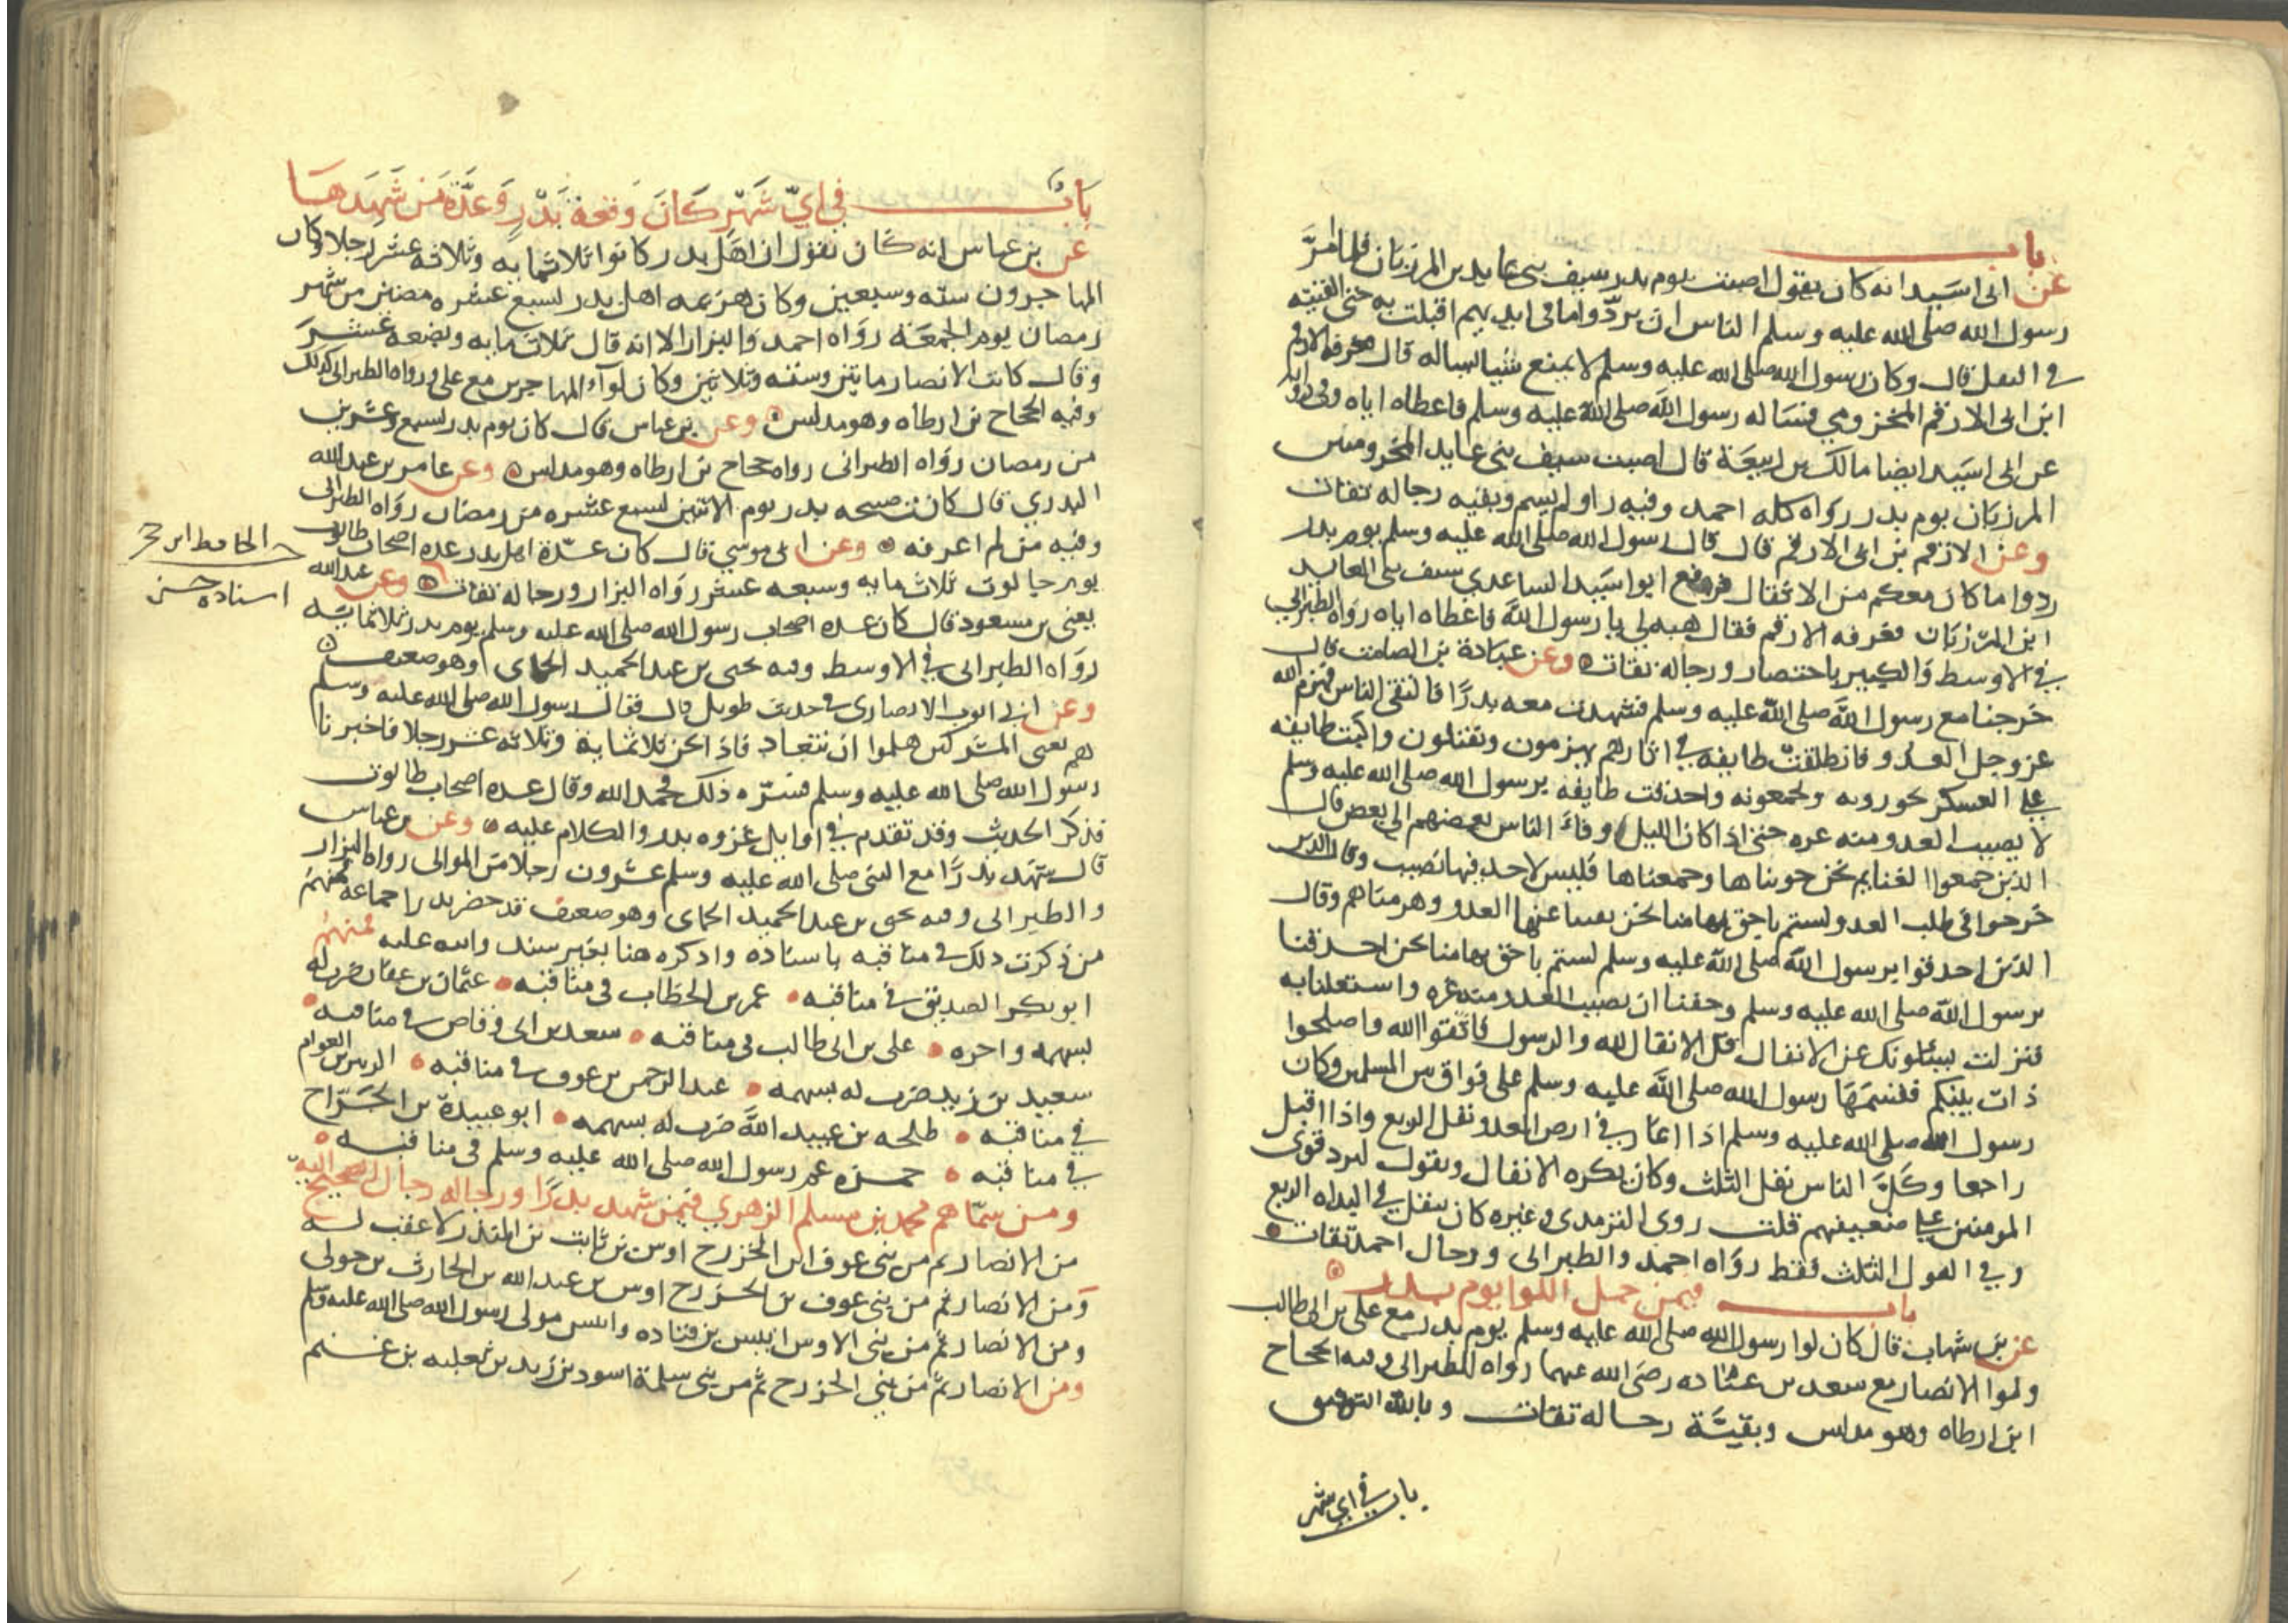 باب
عن ابى اسيد انه كان يقول اصبت يوم بدر سيف بنى عايد بن المرزبان فلما امر
رسول الله صلى الله عليه وسلم الناس ان يردوا ما فى ايديهم اقبلت به حتى القيته
فى النفل قال وكان رسول الله صلى الله عليه وسلم لا يمنع شيئا يساله قال فعرفه الارقم
ابن ابى الارقم المخزومي فساله رسول الله صلى الله عليه وسلم فاعطاه اياه وفى رواية
عن ابى اسيد ايضا مالك بن ربيعة قال اصبت سيف بنى عايد المخزوميين
المرزبان يوم بدر رواه كله احمد وفيه راو لم يسم وبقيه رجاله ثقات
وعن الارقم بن ابى الارقم قال قال رسول الله صلى الله عليه وسلم يوم بدر
ردوا ما كان معكم من الانفال فرفع ابو اسيد الساعدي سيف بنى العابد
ابن المرزبان فعرفه الارقم فقال هبه لي يا رسول الله فاعطاه اياه رواه الطبراني
في الاوسط والكبير باختصار ورجاله ثقات وعن عبادة بن الصامت قال
خرجنا مع رسول الله صلى الله عليه وسلم فشهدت معه بدرًا فالتقى الناس فهزم الله
عز وجل العدو فانطلقت طايفه في اثارهم يهزمون ويقتلون واكبت طايفه
على العسكر يحوونه ويجمعونه واحدقت طايفه برسول الله صلى الله عليه وسلم
لا يصيب العدو منه غره حتى اذا كان الليل وفاء الناس بعضهم الى بعض قال
الذين جمعوا الغنايم نحن حويناها وجمعناها فليس لاحد فيها نصيب وقال الذين
خرجوا فى طلب العدو لستم باحق بها منا نحن نفينا عنها العدو وهزمناهم وقال
الذين احدقوا برسول الله صلى الله عليه وسلم لستم باحق بها منا نحن احدقنا
برسول الله صلى الله عليه وسلم وخفنا ان يصيب العدو منه غره واشتغلنا به
فنزلت يسئلونك عن الانفال قل الانفال لله والرسول فاتقوا الله واصلحوا
ذات بينكم فقسمها رسول الله صلى الله عليه وسلم على فواق بين المسلمين وكان
رسول الله صلى الله عليه وسلم اذا اغار في ارض العدو نفل الربع واذا اقبل
راجعا وكل الناس نفل الثلث وكان يكره الانفال ويقول ليرد قوى
المومنين على ضعيفهم قلت روى الترمذى وغيره كان ينفل في البداه الربع
وفي القفول الثلث فقط رواه احمد والطبرانى ورجال احمد ثقات
باب فيمن حمل اللوا يوم بدر
عن بن شهاب قال كان لوا رسول الله صلى الله عليه وسلم يوم بدر مع على بن ابى طالب
ولوا الانصار مع سعد بن عباده رضى الله عنهما رواه الطبرانى وفيه الحجاج
ابن ارطاه وهو مدلس وبقية رجاله ثقات وبالله التوفيق
باب في اي شهر
باب في اي شهر كان وقعة بدر وعدة من شهدها
عن بن عباس انه كان يقول ان اهل بدر كانوا ثلاثمايه وثلاثه عشر رجلا وكان
المهاجرون سته وسبعين وكان هزيمه اهل بدر لسبع عشره مضين من شهر
رمضان يوم الجمعة رواه احمد والبزار الا انه قال ثلاثمايه وبضعه عشر
وقال كانت الانصار مايتين وسته وثلاثين وكان لواء المهاجرين مع على ورواه الطبرانى كذلك
وفيه الحجاج بن ارطاه وهو مدلس وعن بن عباس قال كان يوم بدر لسبع وعشرين
من رمضان رواه الطبرانى رواه حجاج بن ارطاه وهو مدلس وعن عامر بن عبد الله
البدري قال كانت صبيحه بدر يوم الاثنين لسبع عشره من رمضان رواه الطبرانى
وفيه من لم اعرفه وعن ابى موسي قال كان عدة اهل بدر عده اصحاب طالوت
يوم جالوت ثلاثمايه وسبعه عشر رواه البزار ورجاله ثقات وعن عبد الله
حـ الحافظ ابن حجر
اسناده حسن
يعنى بن مسعود قال كان عده اصحاب رسول الله صلى الله عليه وسلم يوم بدر ثلاثمايه
رواه الطبرانى في الاوسط وفيه يحيى بن عبد الحميد الحمانى وهو ضعيف
وعن ابى ايوب الانصارى فى حديث طويل قال فقال رسول الله صلى الله عليه وسلم
هم يعنى المشركين هلموا ان نتعاد فاذا نحن ثلاثمايه وثلاثه عشر رجلا فاخبرنا
رسول الله صلى الله عليه وسلم فسره ذلك فحمد الله وقال عده اصحاب طالوت
فذكر الحديث وقد تقدم في اوايل غزوه بدر والكلام عليه وعن بن عباس
قال شهد بدرًا مع النبى صلى الله عليه وسلم عشرون رجلا من الموالى رواه البزار
والطبرانى وفيه يحيى بن عبد الحميد الحمانى وهو ضعيف قد حضر بدرا جماعة فمنهم
من ذكرت ذلك فى مناقبه باسناده واذكره هنا بغير سند وانبه عليه فمنهم
ابو بكر الصديق في مناقبه عمر بن الخطاب فى مناقبه عثمان بن عفان ضرب له
بسهمه واجره على بن ابى طالب فى مناقبه سعد بن ابى وقاص فى مناقبه
سعيد بن زيد ضرب له بسهمه عبد الرحمن بن عوف فى مناقبه الزبير بن العوام
في مناقبه طلحه بن عبيد الله ضرب له بسهمه ابو عبيدة بن الجراح
في مناقبه حمزه عم رسول الله صلى الله عليه وسلم فى مناقبه
ومن سماهم محمد بن مسلم الزهري فيمن شهد بدرًا ورجاله رجال الصحيح اليه
من الانصار ثم من بنى عوف بن الخزرج اوس بن ثابت بن المنذر لا عقب له
ومن الانصار ثم من بنى عوف بن الخزرج اوس بن عبد الله بن الحارث بن خولى
ومن الانصار ثم من بنى الاوس انيس بن قتاده وانس مولى رسول الله صلى الله عليه وسلم
ومن الانصار ثم من بنى الخزرج ثم من بنى سلمة اسود بن زيد بن ثعلبه بن غنم